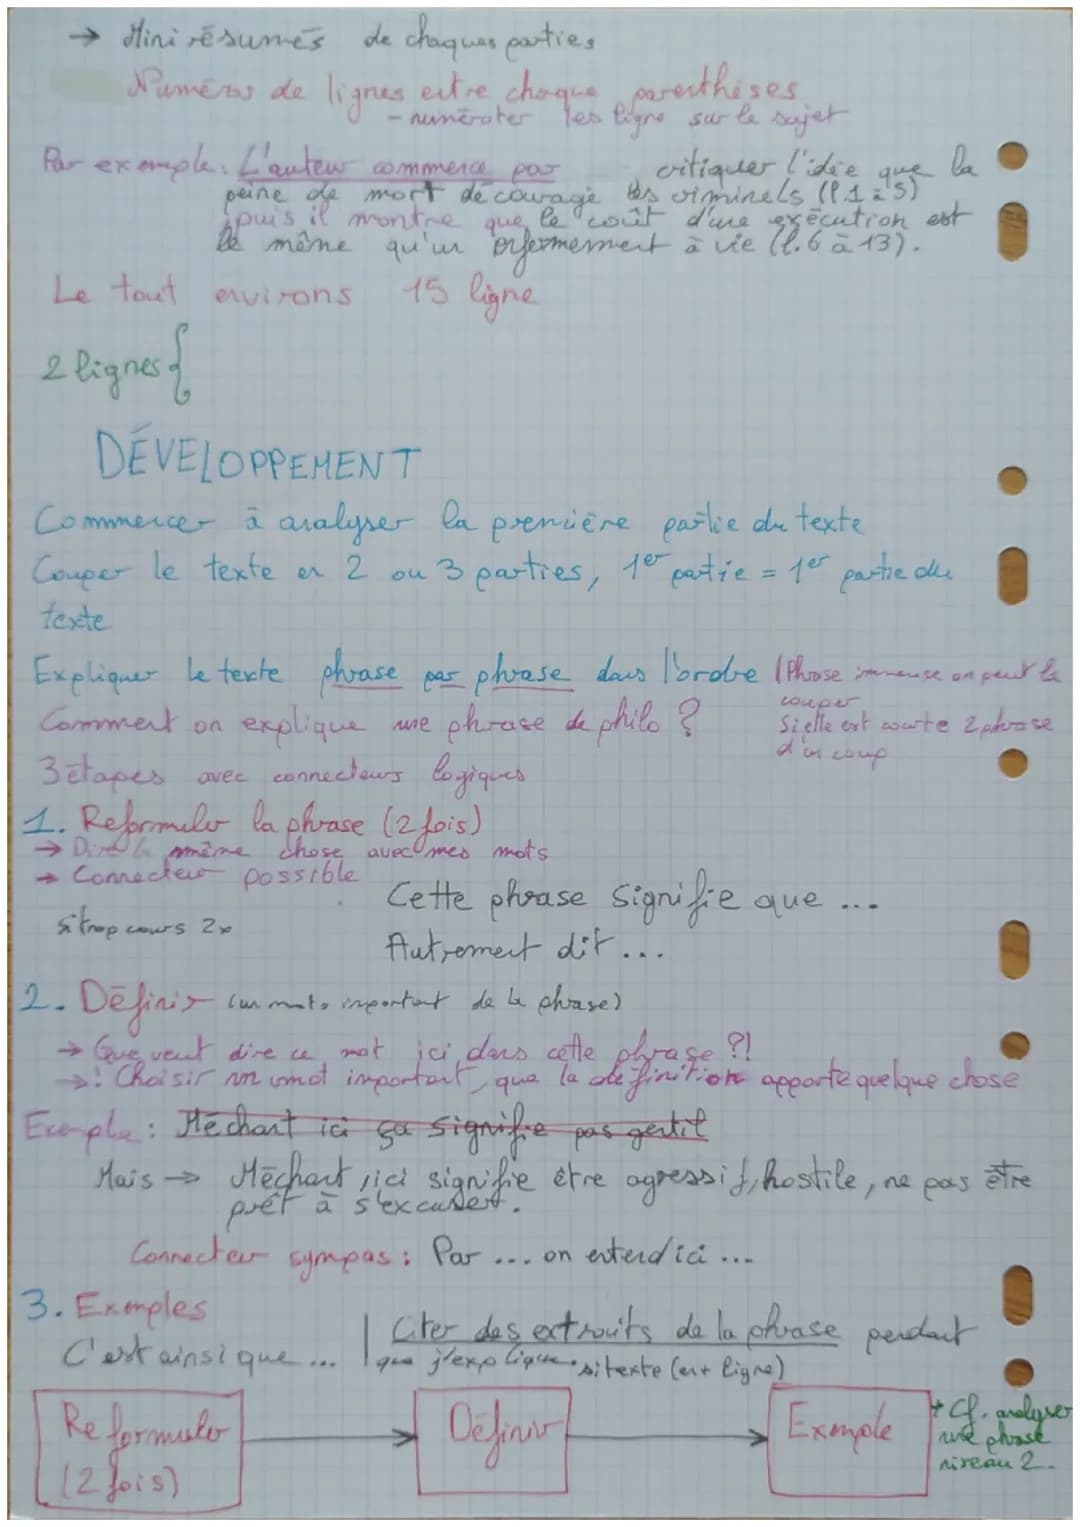 → Mini résumés de chaques parties
Numéros de lignes entre chaque parenthèses
- numéroter les ligne sur le sujet
Par exemple: L'auteur commence par critiquer l'idée que la
peine de mort décourage les criminels (l.1 à 5)
puis il montre que le coût d'une exécution est
le même qu'un enfermement à vie (l.6 à 13).
Le tout environs 15 ligne
2 lignes {
DÉVELOPPEMENT
Commencer à analyser la première partie du texte
Couper le texte en 2 ou 3 parties, 1er partie = 1er partie du
texte
Expliquer le texte phrase par phrase dans l'ordre (Phrase immense on peut la
couper
Comment on explique une phrase de philo ? Si elle est courte 2 phrase
d'un coup
3 étapes avec connecteurs logiques
1. Reformuler la phrase (2 fois)
→ Dire la même chose avec mes mots
→ Connecteur possible
Cette phrase signifie que ...
si trop cours 2x
Autrement dit ...
2. Définir (un mots important de la phrase)
→ Que veut dire ce mot ici, dans cette phrase ?!
→ ! Choisir un mot important, que la définition apporte quelque chose
Exemple : Méchant ici ça signifie pas gentil
Mais → Méchant, ici signifie être agressif, hostile, ne pas être
prêt à s'excuser.
Connecteur sympas : Par ... on entend ici ...
3. Exemples
C'est ainsi que ...
Citer des extraits de la phrase pendant
que j'explique. si texte (en+ ligne)
Reformuler
(2 fois)
Définir
Exemple
+ Cf. analyser
une phrase
niveau 2.